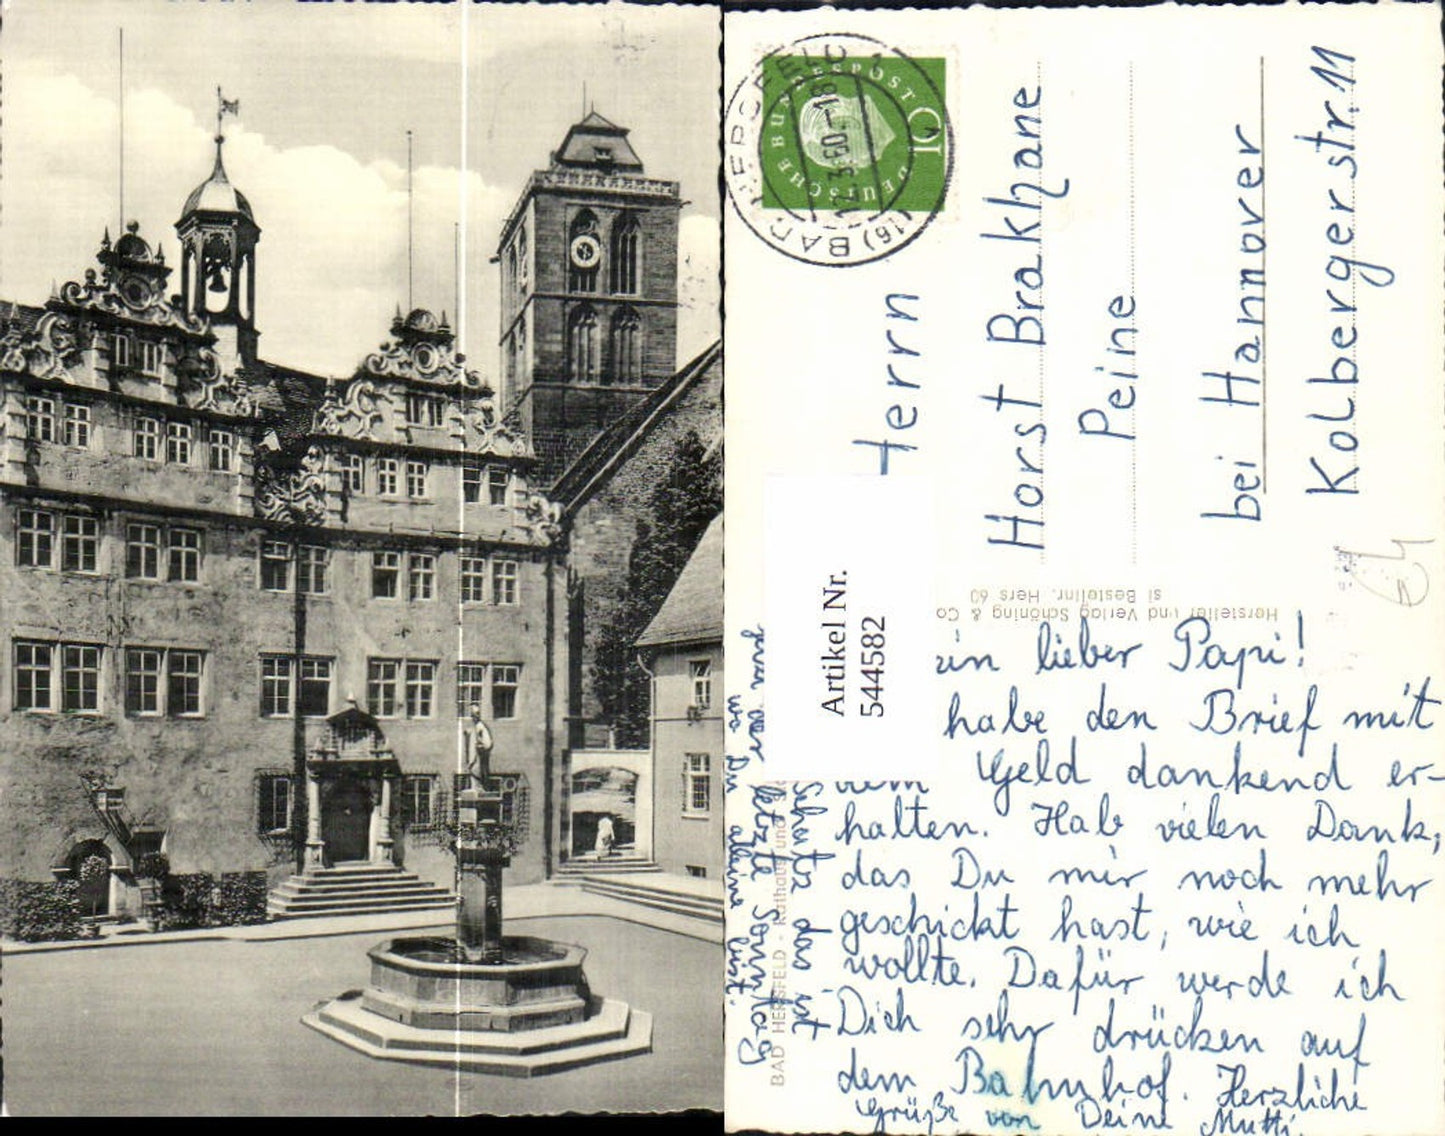 DEUTSCHE BUNDESPOST
10
BAD HERSFELD 1
12.3.60.-18
(16)
Herrn
Horst Brakhane
Peine
bei Hannover
Kolbergerstr. 11
Hersteller und Verlag Schöning & Co
si Bestellnr. Hers 60
Artikel Nr.
544582
lieber Papi!
habe den Brief mit
dem Geld dankend er-
halten. Hab vielen Dank,
das Du mir noch mehr
geschickt hast, wie ich
wollte. Dafür werde ich
Dich sehr drücken auf
dem Bahnhof. Herzliche
Grüße von Deine Mutti.
Schatz das ist
der letzte Sonntag
wo Du alleine bist.
BAD HERSFELD - Rathaus und